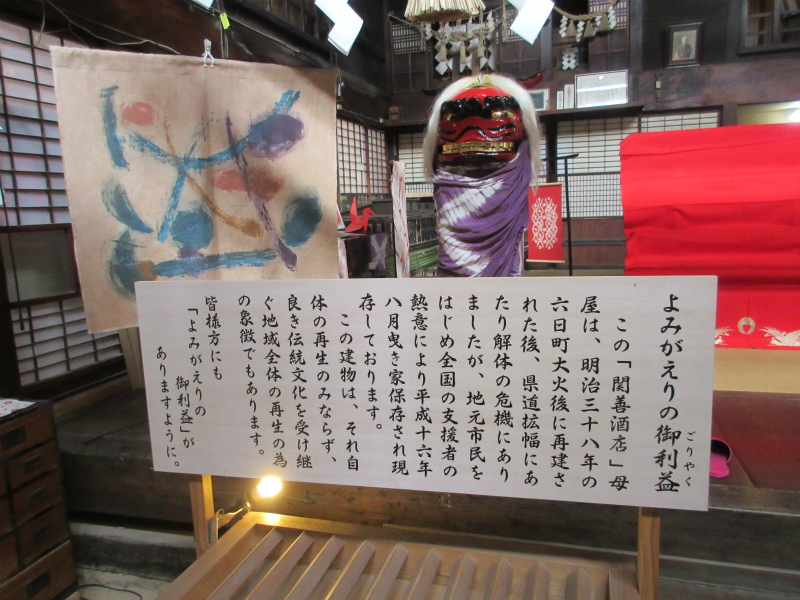 よみがえりの御利益
ごりやく
この「関善酒店」母
屋は、明治三十八年の
六日町大火後に再建さ
れた後、県道拡幅にあ
たり解体の危機にあり
ましたが、地元市民を
はじめ全国の支援者の
熱意により平成十六年
八月曳き家保存され現
存しております。
この建物は、それ自
体の再生のみならず、
良き伝統文化を受け継
ぐ地域全体の再生の為
の象徴でもあります。
皆様方にも
「よみがえりの
御利益」が
ありますように。